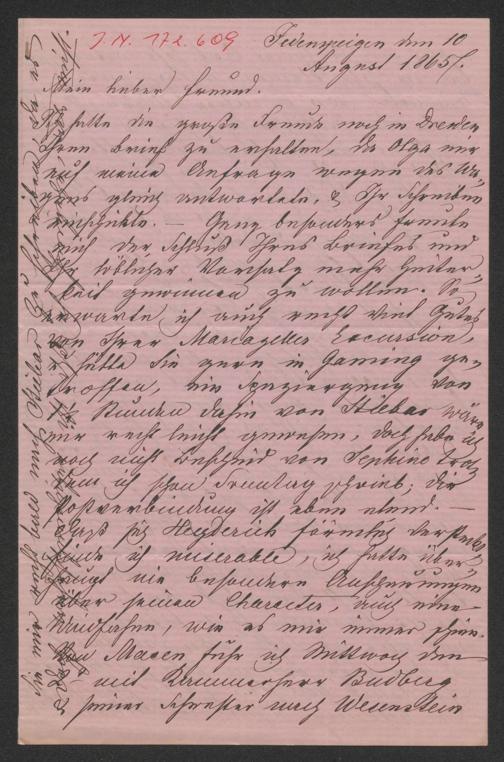 J.N. 172.609
Jedenspeigen den 10
August 1865.
Mein lieber Freund.
Ich hatte die große Freude noch in Dresden
Ihren Brief zu erhalten, da Olga mir
auf meine Anfrage wegen des Wa-
gens gleich antwortete, & Ihr Schreiben
einschickte. — Ganz besonders freute
mich der Schluß Ihres Briefes und
Ihr löblicher Vorsatz mehr Heiter-
keit gewinnen zu wollen. So
erwarte ich auch recht viel Gutes
von Ihrer Mariazeller Excursion,
ich hätte Sie gern in Gaming ge-
troffen, ein Spaziergang von
Stunden dahin von Stiebar wäre
mir recht leicht gewesen, doch habe ich
noch nicht Bescheid von Sephine trotz-
dem ich schon Sonntag schrieb; die
Postverbindung ist eben elend. —
Daß sich Heyderich förmlich
finde ich miserable, ich hatte über-
haupt nie besondere Anschauungen
über seinen Character, auch eine
Windfahne, wie es mir immer schien.
Von Maxen fuhr ich Mittwoch den
mit Kammerherr Budberg
& seiner Schwester nach Wesenstein
Sie mir recht bald nach Stiebar zu schreiben da es